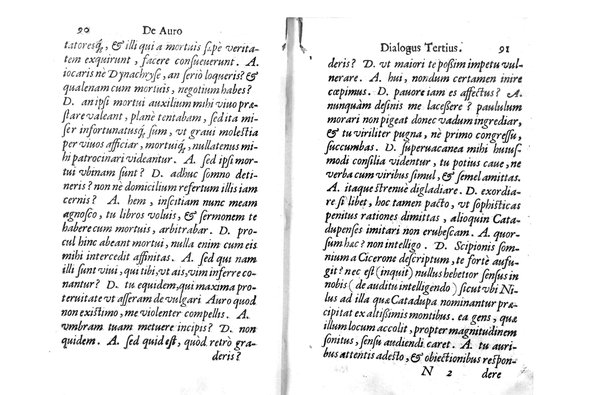 90 De Auro
tatoresq́, & illi qui a mortuis sępè verita-
tem exquirunt, facere consueuerunt. A.
iocaris nè Dynachryse, an seriò loqueris? &
qualenam cum mortuis, negotium habes?
D. an ipsi mortui auxilium mihi viuo præ-
stare valeant, planè tentabam, sed ita mi-
ser infortunatusq́ sum, ut graui molestia
per viuos afficiar, mortuiq́, nullatenus mi-
hi patrocinari videantur. A. sed ipsi mor-
tui vbinam sunt? D. adhuc somno deti-
neris? non nè domicilium refertum illis iam
cernis? A. hem, inscitiam nunc meam
agnosco, tu libros voluis, & sermonem te
habere cum mortuis, arbitrabar. D. pro-
cul hinc abeant mortui, nulla enim cum eis
mihi intercedit affinitas. A. sed qui nam
illi sunt viui, qui tibi, vt ais, vim inferre co-
nantur? D. tu equidem, qui maxima pro-
teruitate ut asseram de vulgari Auro quod
non existimo, me violenter compellis. A.
vmbram tuam metuere incipis? D. non
quidem. A. sed quid est, quòd retrò gra-
deris?
Dialogus Tertius. 91
deris? D. vt maiori te poßim impetu vul-
nerare. A. hui, nondum certamen inire
cœpimus. D. pauore iam es affectus? A.
nunquàm definis me lacesere? paululum
morari non pigeat donec vadum ingrediar,
& tu viriliter pugna, nè primo congressu,
succumbas. D. superuacanea mihi huius-
modi consilia videntur, tu potius caue, ne
verba cum viribus simul, & semel amittas.
A. itaque strenuè digladiare. D. exordia-
re si libet, hoc tamen pacto, vt sophisticas
penitus rationes dimittas, alioquin Cata-
dupenses imitari non erubescam. A. quor-
sum hac? non intelligo. D. Scipionis som-
nium a Cicerone descriptum, te fortè aufu-
git? nec est (inquit) nullus hebetior sensus in
nobis (de auditu intelligendo) sicut vbi Ni-
lus ad illa quæ Catadupa nominantur præ-
cipitat ex altißimis montibus. ea gens, quæ
illum locum accolit, propter magnitudinem
sonitus, sensu audiendi caret. A. tu auri-
bus attentis adesto, & obiectionibus respon-
N 2 dere